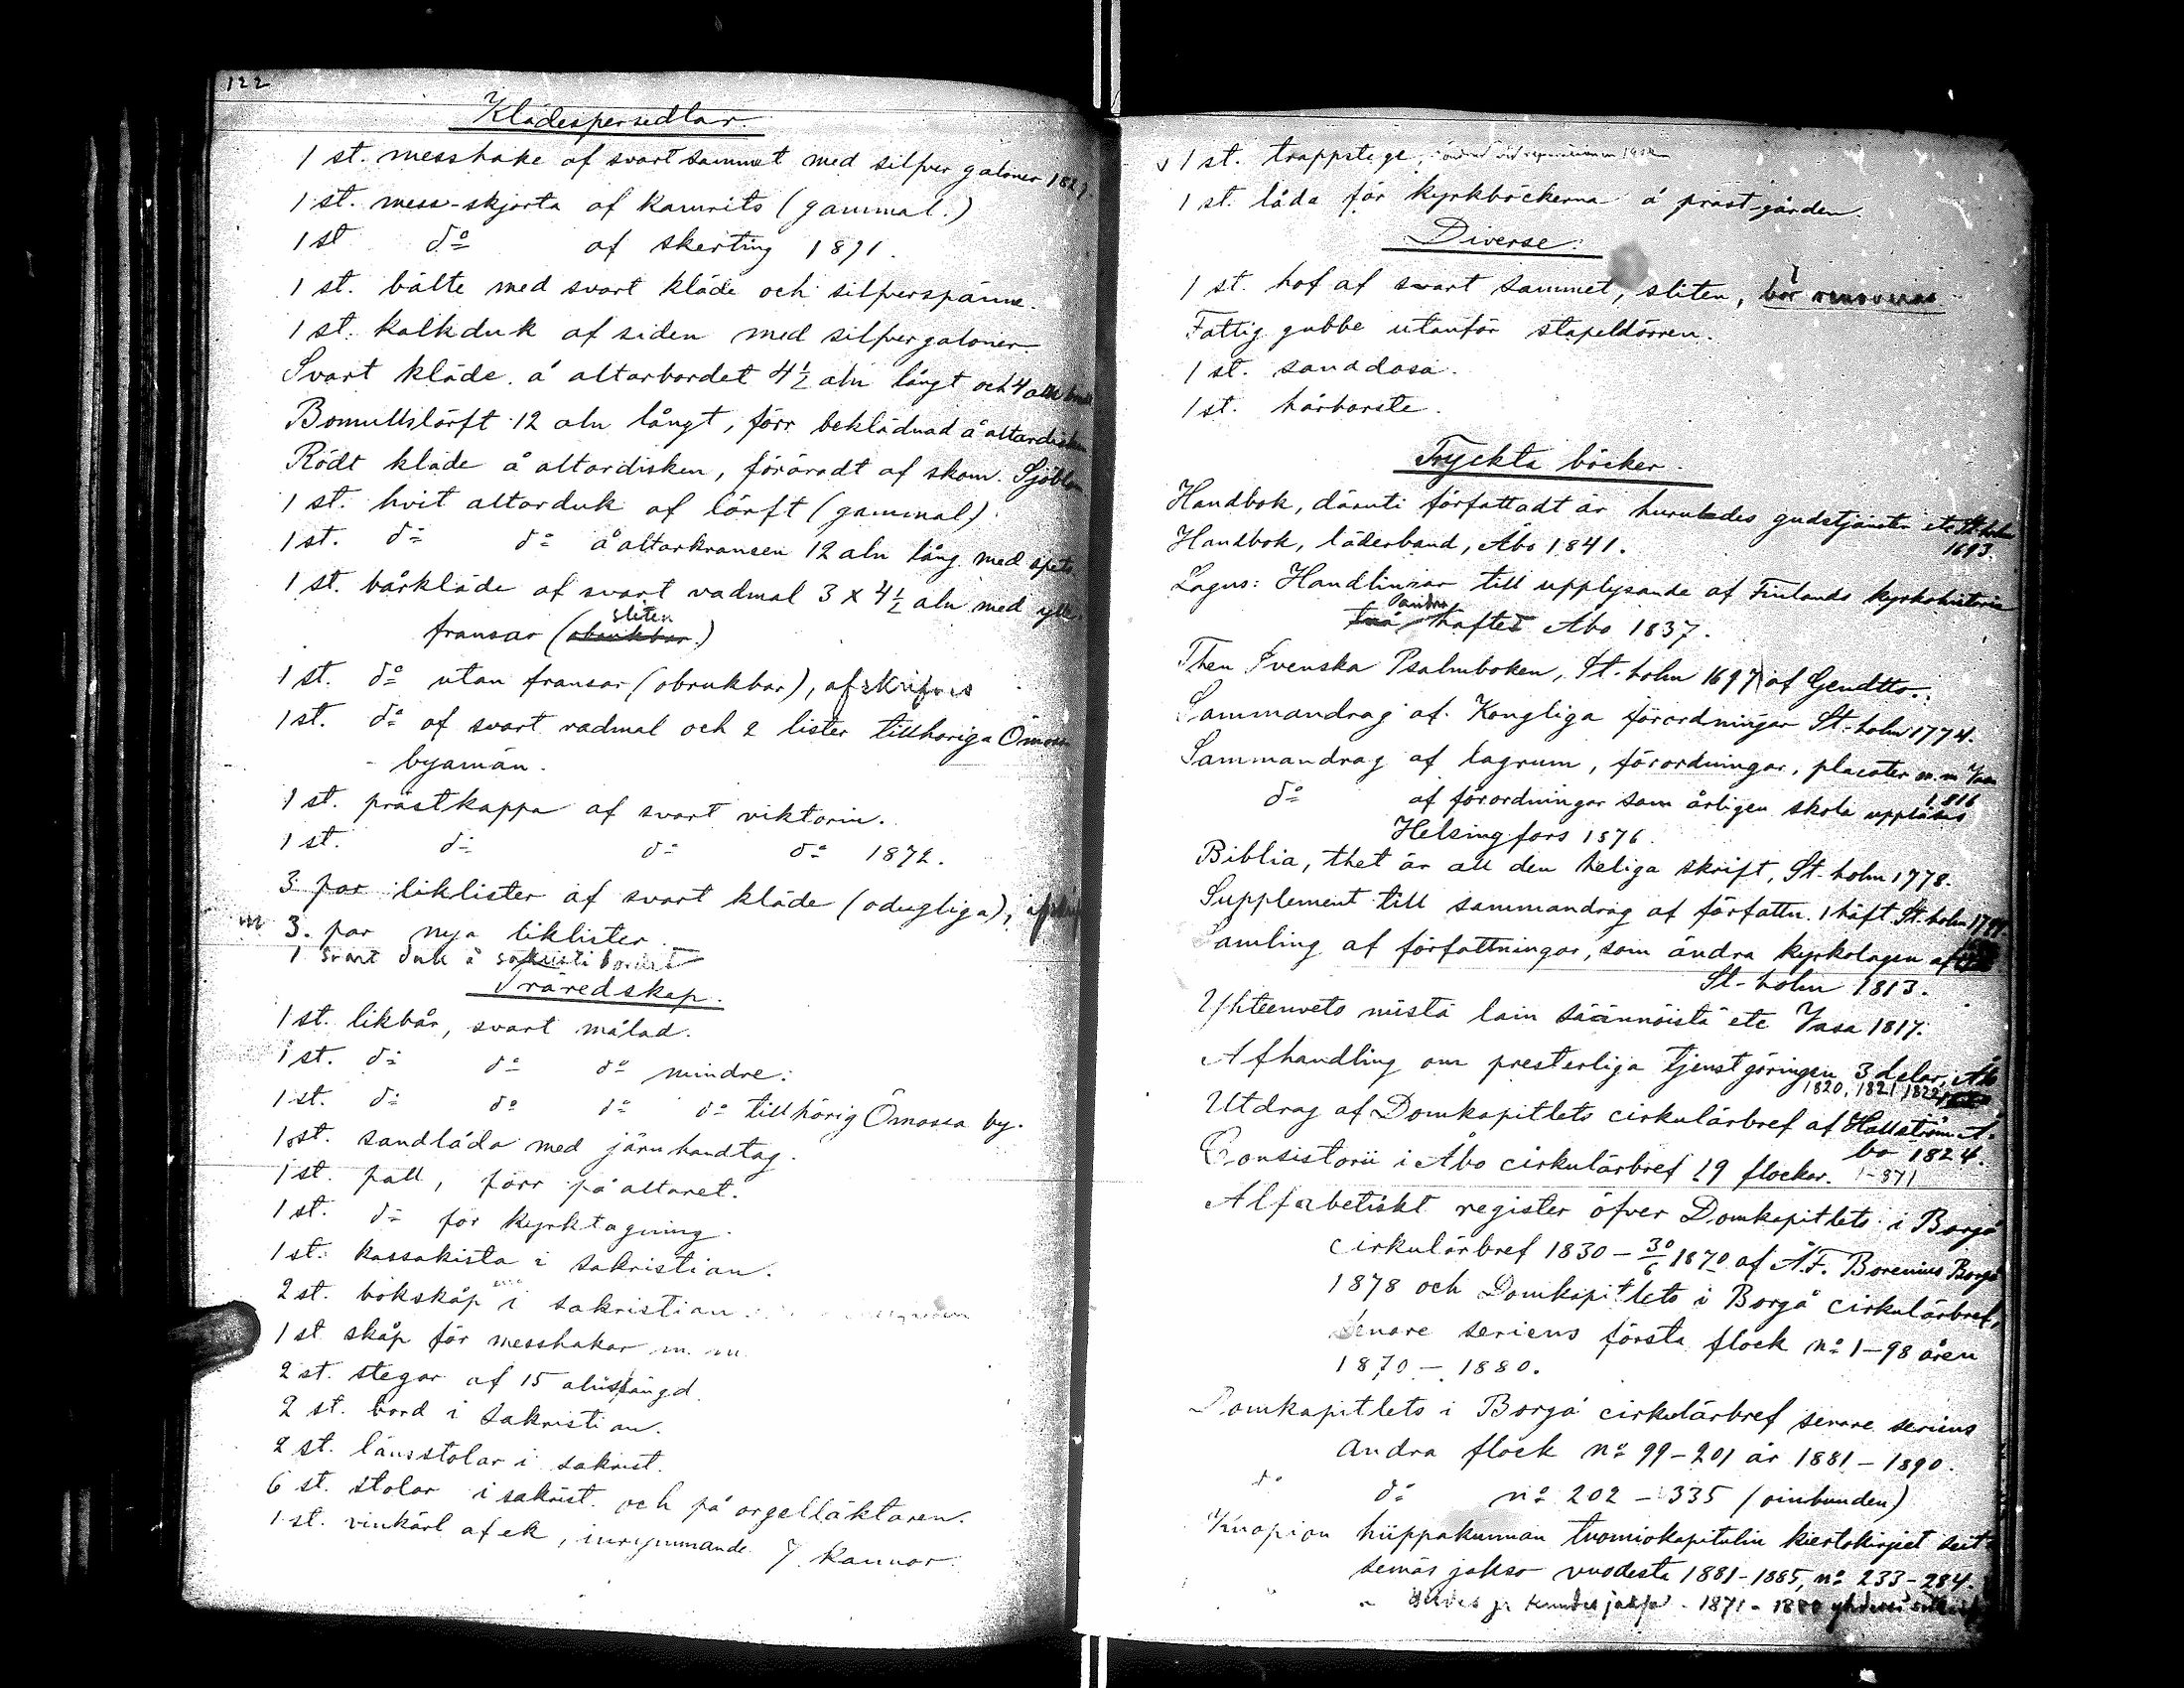 122
Klädespersedlar.
1 st. messhake af svart sammet med silfver galoner 1821.
1 st. mess-skjorta af kamrits (gammal.)
1 st d:o af skerting 1871.
1 st. bälte med svart kläde och silfverspänne.
1 st. kalkduk af siden med silfvergaloner.
Svart kläde å altarbordet 4 1/2 aln långt och 4 aln
Bomullslärft 12 aln långt, förr beklädnad å altardisken
Rödt kläde å altardisken, föräradt af skom. Sjöblom
1 st. hvit altarduk af lärft (gammal)
1 st. d:o d:o å altarkransen 12 aln lång med spets
1 st. bårkläde af svart vadmal 3 x 4 1/2 aln med ylle
sliten
fransar (obrukbar.)
1 st. d:o utan fransar (obrukbar), afskrifves
1 st. d:o af svart vadmal och 2 lister tillhöriga Ömossa
byamän.
1 st. prästkappa af svart viktorin.
1 st. d:o d:o d:o 1872.
3 par liklister af svart kläde (odugliga),
3. par nya liklister.
1 svart duk å sakristibordet
Träredskap.
1 st. likbår, svart målad.
1 st. d:o d:o d:o mindre.
1 st. d:o d:o d:o d:o tillhörig Ömossa by.
1 st. sandlåda med järnhandtag.
1 st. pall, förr på altaret.
1 st. d:o för kyrktagning.
1 st. kassakista i sakristian.
2 st. bokskåp i sakristian.
1 st skåp för messhakar m. m.
2 st. stegar af 15 alnslängd.
2 st. bord i sakristian.
2 st. länsstolar i sakrist.
6 st. stolar i sakrist. och på orgelläktaren.
1 st. vinkärl af ek, inrymmande 7 kannor.
v 1 st. trappstege,
1 st. låda för kyrkböckerna å prästgården.
Diverse.
1 st. hof af svart sammet, sliten, bör renoveras
Fattig gubbe utanför stapeldörren.
1 st. sanddosa.
1 st. hårborste.
Tryckta böcker.
Handbok, däruti författadt är hurulcdes gudstjänsten etc St.holm
1693.
Handbok, läderband, Åbo 1841.
Lagus: Handlingar till upplysande af Finlands kyrkohistoria
andra
två häftet Åbo 1837.
Then Svenska Psalmboken, St-holm 1697 af
Sammandrag af Kongliga förordningar St-holm 1774.
Sammandrag af lagrum, förordningar, placater m.m Vasa
1816
d:o af förordningar som årligen skola uppläsas
Helsingfors 1876.
Biblia, thet är all den heliga skrift, St-holm 1778.
Supplement till sammandrag af författn. 1 häft St.holm
Samling af författningar, som ändra kyrkolagen af
St-holm 1813.
Yhteenveto niistä lain säännöistä etc Vasa 1817.
Afhandling om presterliga tjenstgöringen 3 delar, Åbo
1820, 1821, 1822
Utdrag af Domkapitlets cirkulärbref af Hällström Å-
bo 1824.
Consistorii i Åbo cirkulärbref 19 flockar. 1-871
Alfabetiskt register öfver Domkapitlets i Borgå
cirkulärbref 1830 - 30/6 1870 af A.F. Borenius Borgå
1878 och Domkapitlets i Borgå cirkulärbref,
senare seriens första flock n:o 1-98 åren
1870 - 1880.
Domkapitlets i Borgå cirkulärbref senare seriens
andra flock n:o 99-201 år 1881-1890.
d:o d:o n:o 202 - 335 (oinbunden)
Kuopion hiippakunnan tuomiokapitulin kiertokirjeet seit-
semäs jakso vuodesta 1881-1885, n:o 233-284.
" ja kuudes jakso - 1871 - 1880